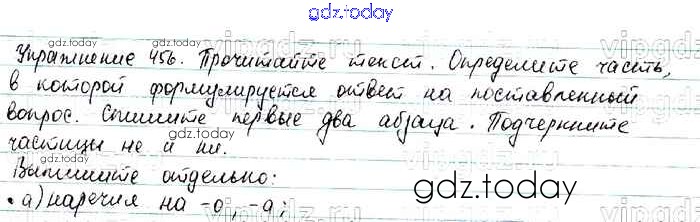 gdz.today
Упражнение 456. Прочитайте текст. Определите часть,
в которой формулируется ответ на поставленный
вопрос. Спишите первые два абзаца. Подчеркните
частицы не и ни.
Выпишите отдельно:
а) наречия на -о, -а;
gdz.today